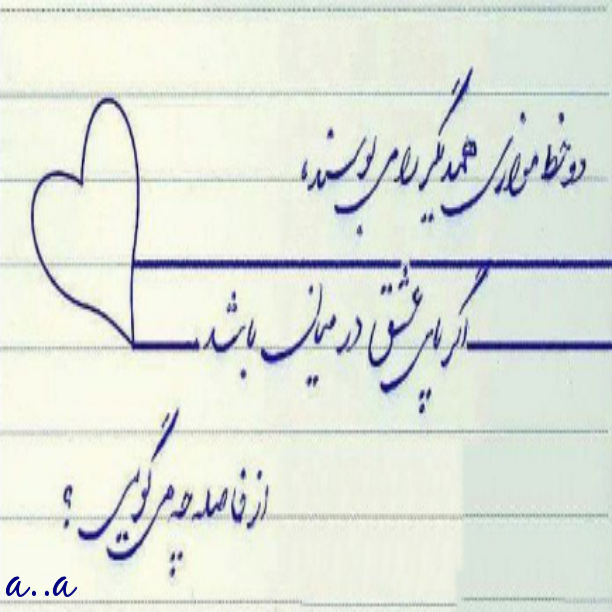 دو خط موازی همدیگر را می بوسند،
اگر پای عشق در میان باشد
از فاصله چه می گویی ؟
a..a